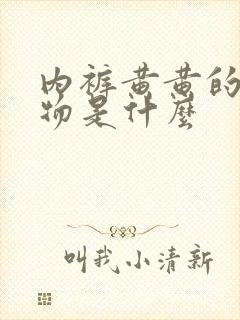 内裤黄黄的
物是什麼
叫我小清新